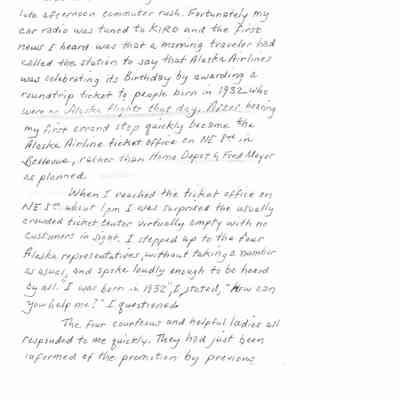 late afternoon commuter rush. Fortunately my
car radio was tuned to KIRO and the first
news I heard was that a morning traveler had
called the station to say that Alaska Airlines
was celebrating its Birthday by awarding a
roundtrip ticket to people born in 1932 who
were on Alaska flights that day. After hearing
my first errand stop quickly became the
Alaska Airline ticket office on NE 8th in
Bellevue, rather than Home Depot & Fred Meyer
as planned.
When I reached the ticket office on
NE 8th about 1pm I was surprised the usually
crowded ticket center virtually empty with no
customers in sight. I stepped up to the four
Alaska representatives, without taking a number
as usual, and spoke loudly enough to be heard
by all. "I was born in 1932", I stated, "How can
you help me?" I questioned.
The four courteous and helpful ladies all
responded to me quickly. They had just been
informed of the promotion by previous